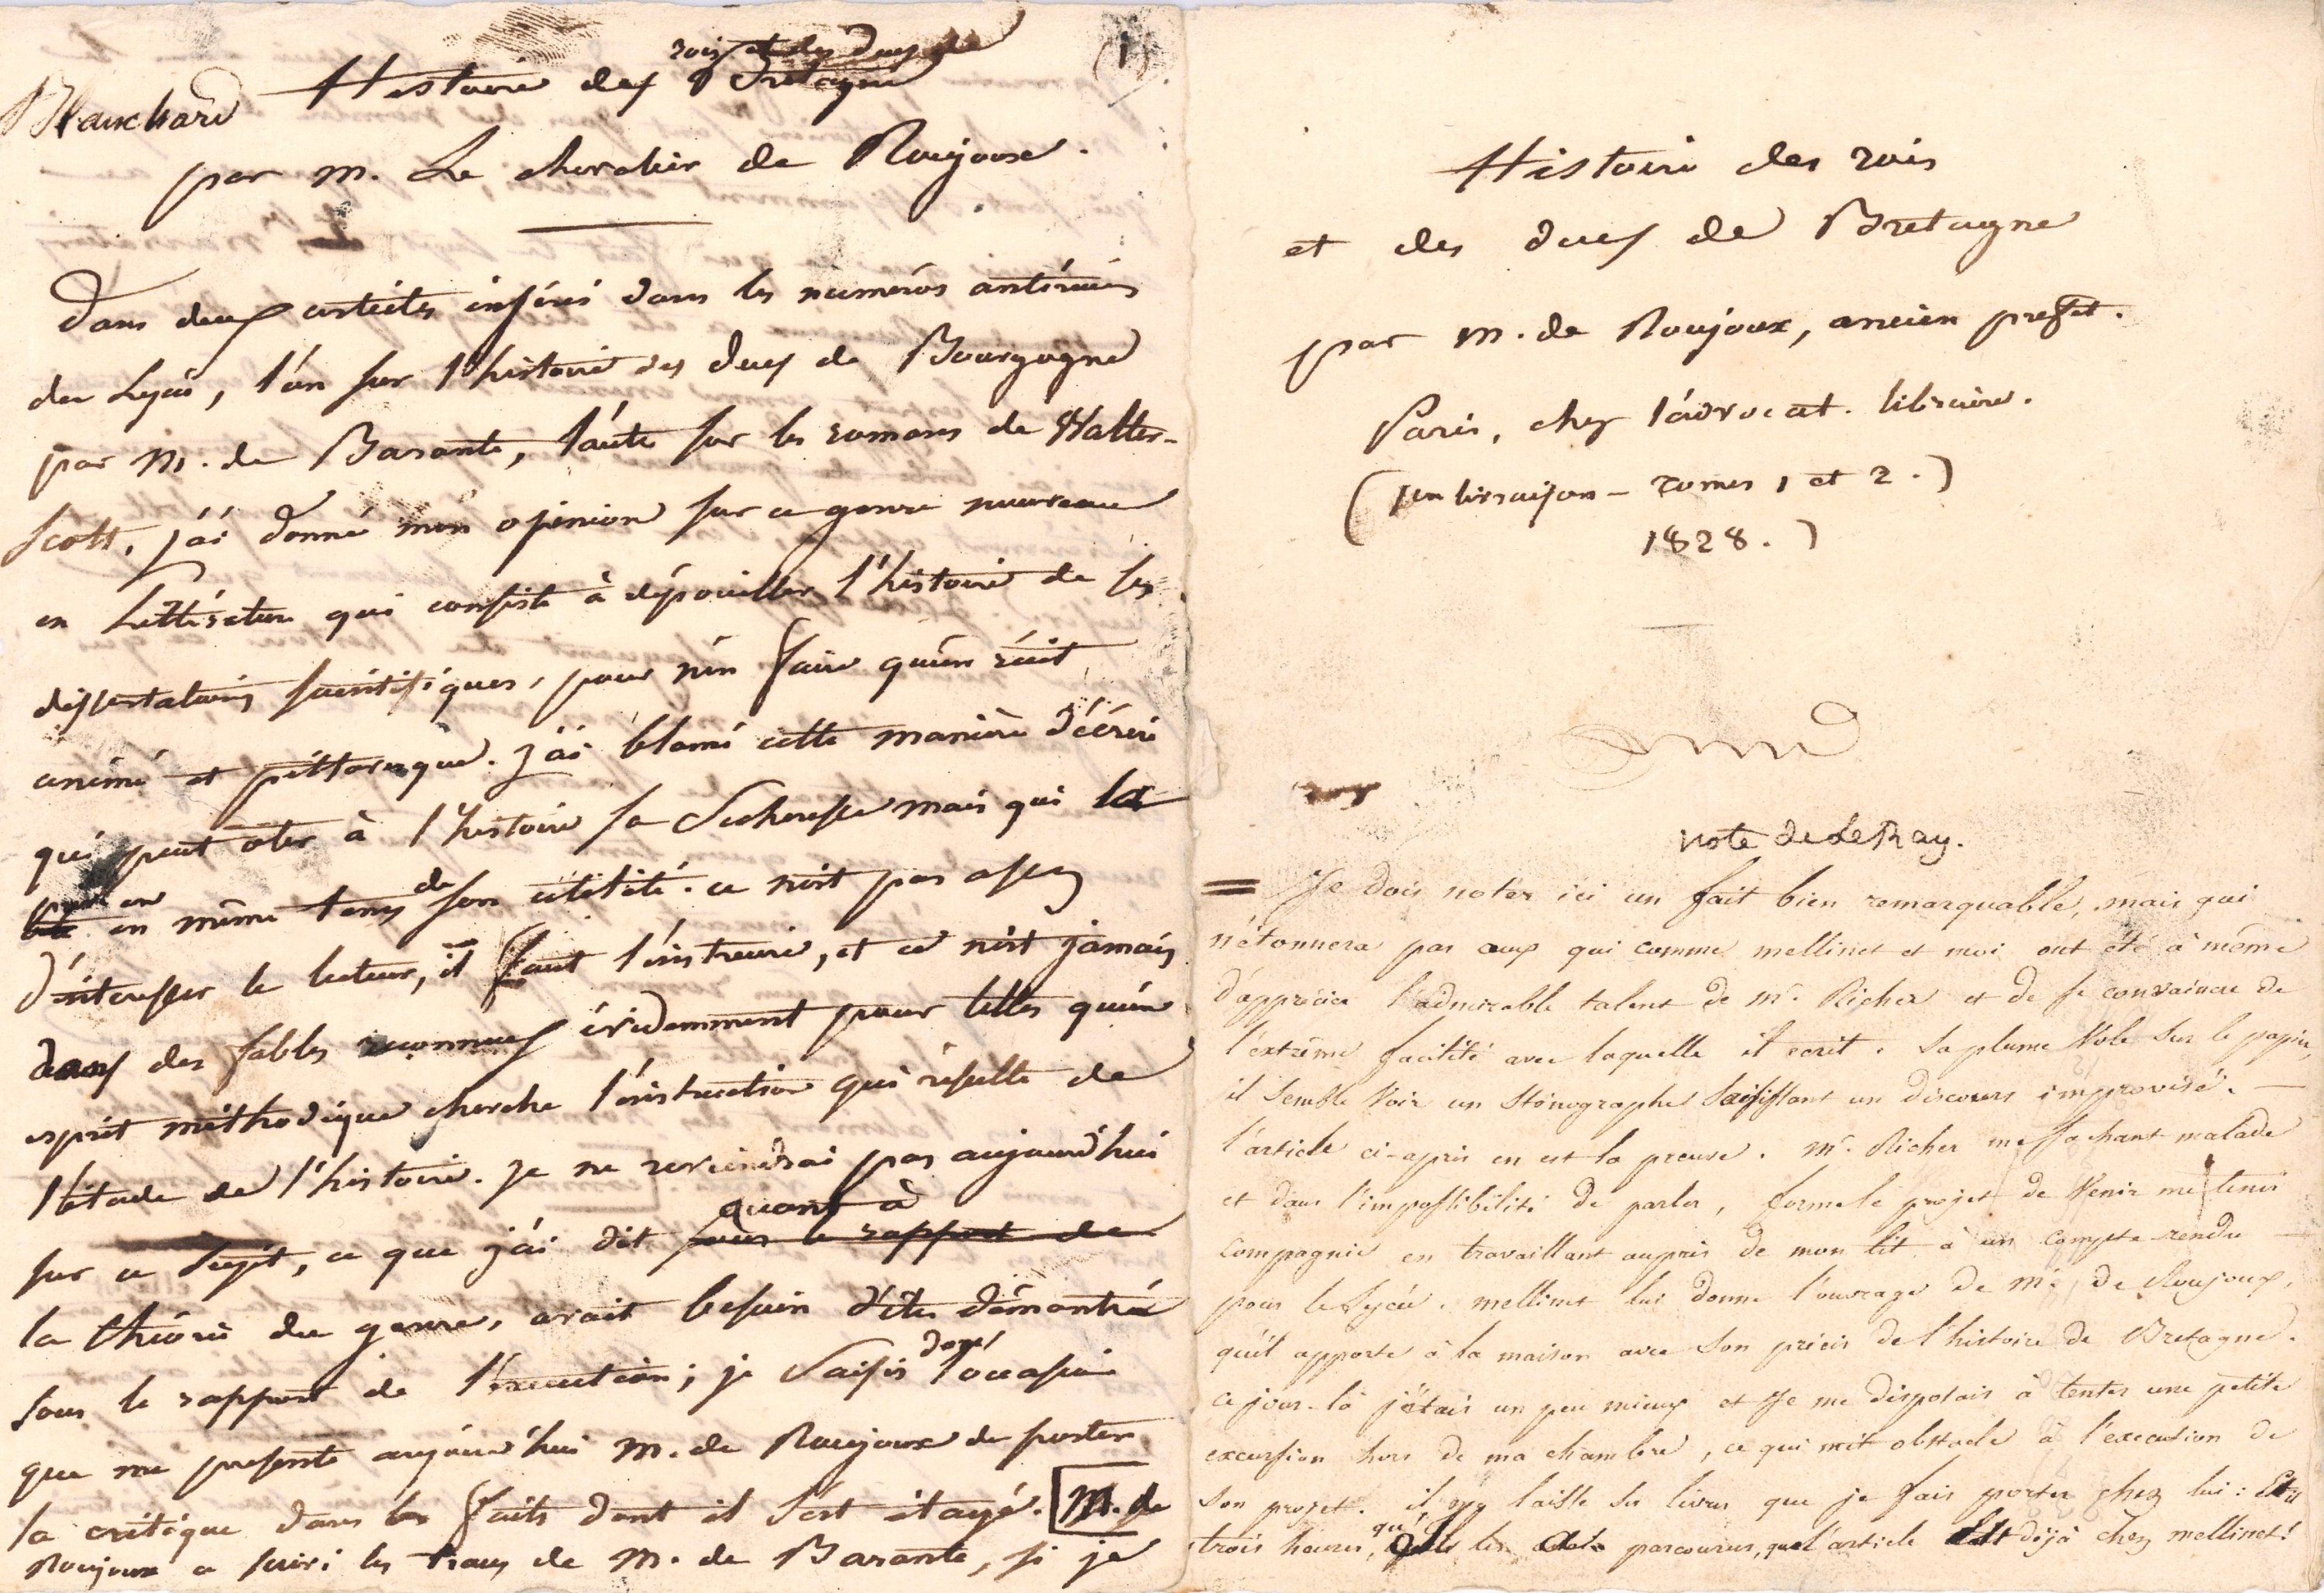 (1)
rois et des ducs de
Blanchard Histoire des Bretagne
par m. Le chevalier de Roujoux.
Dans deux articles insérés dans les numéros antérieurs
du Lycée, l'un sur l'histoire des ducs de Bourgogne
par M. de Barante, l'autre sur les romans de Walter-
Scott, j'ai donné mon opinion sur ce genre nouveau
en Littérature qui consiste à dépouiller l'histoire de ses
dissertations scientifiques, pour n'en faire qu'un récit
animé et pittoresque. j'ai blamé cette manière d'écrire
qui peut oter à l'histoire sa Secheresse mais qui la
en même tems de son utilité. ce n'est pas assez
d'interesser le lecteur, il faut l'instruire, et ce n'est jamais
dans des fables reconnues évidemment pour telles qu'un
esprit méthodique cherche l'instruction qui résulte de
l'étude de l'histoire. je ne reviendrai pas aujourd'hui
quant à
sur ce sujet, ce que j'ai dit sous le rapport de
la théorie du genre, avait besoin d'être démontré
sous le rapport de l'execution; je Saisis donc l'occasion
que me presente aujourd'hui M. de Roujoux de porter
la critique dans les faits dont il s'est étayé. M. de
Roujoux a suivi les traces de M. de Barante, si je
Histoire des rois
et des ducs de Bretagne
par m. de Roujoux, ancien prefet.
Paris, chez l'advocat. libraire.
(1ere livraison – Tomes 1 et 2.)
1828.)
Note de LeRay.
= Je dois noter ici un fait bien remarquable, mais qui
n'étonnera pas ceux qui comme mellinet et moi ont été à même
d'apprécier l'admirable talent de Mr. Richer et de se convaincre de
l'extrême facilité avec laquelle il ecrit. Sa plume Vole Sur le papier,
il Semble Voir un Sténographe Saisissant un discours improvisé. —
l'article ci-après en est la preuve. Mr. Richer me sachant malade
et dans l'impossibilité de parler, forme le projet de Venir me tenir
Compagnie en travaillant auprès de mon lit à un compte rendu —
pour le Lycée. mellinet lui donne l'ouvrage de Mr. de Roujoux,
qu'il apporte à la maison avec Son précis de l'histoire de Bretagne.
Ce jour-là j'étais un peu mieux et Je me disposais à tenter une petite
excursion hors de ma chambre, ce qui mit obstacle à l'execution de
Son projet. il y laisse Ses livres que je fais porter chez lui: Et
trois heures, qu'il les a parcourus, que l'article Est déjà chez mellinet!